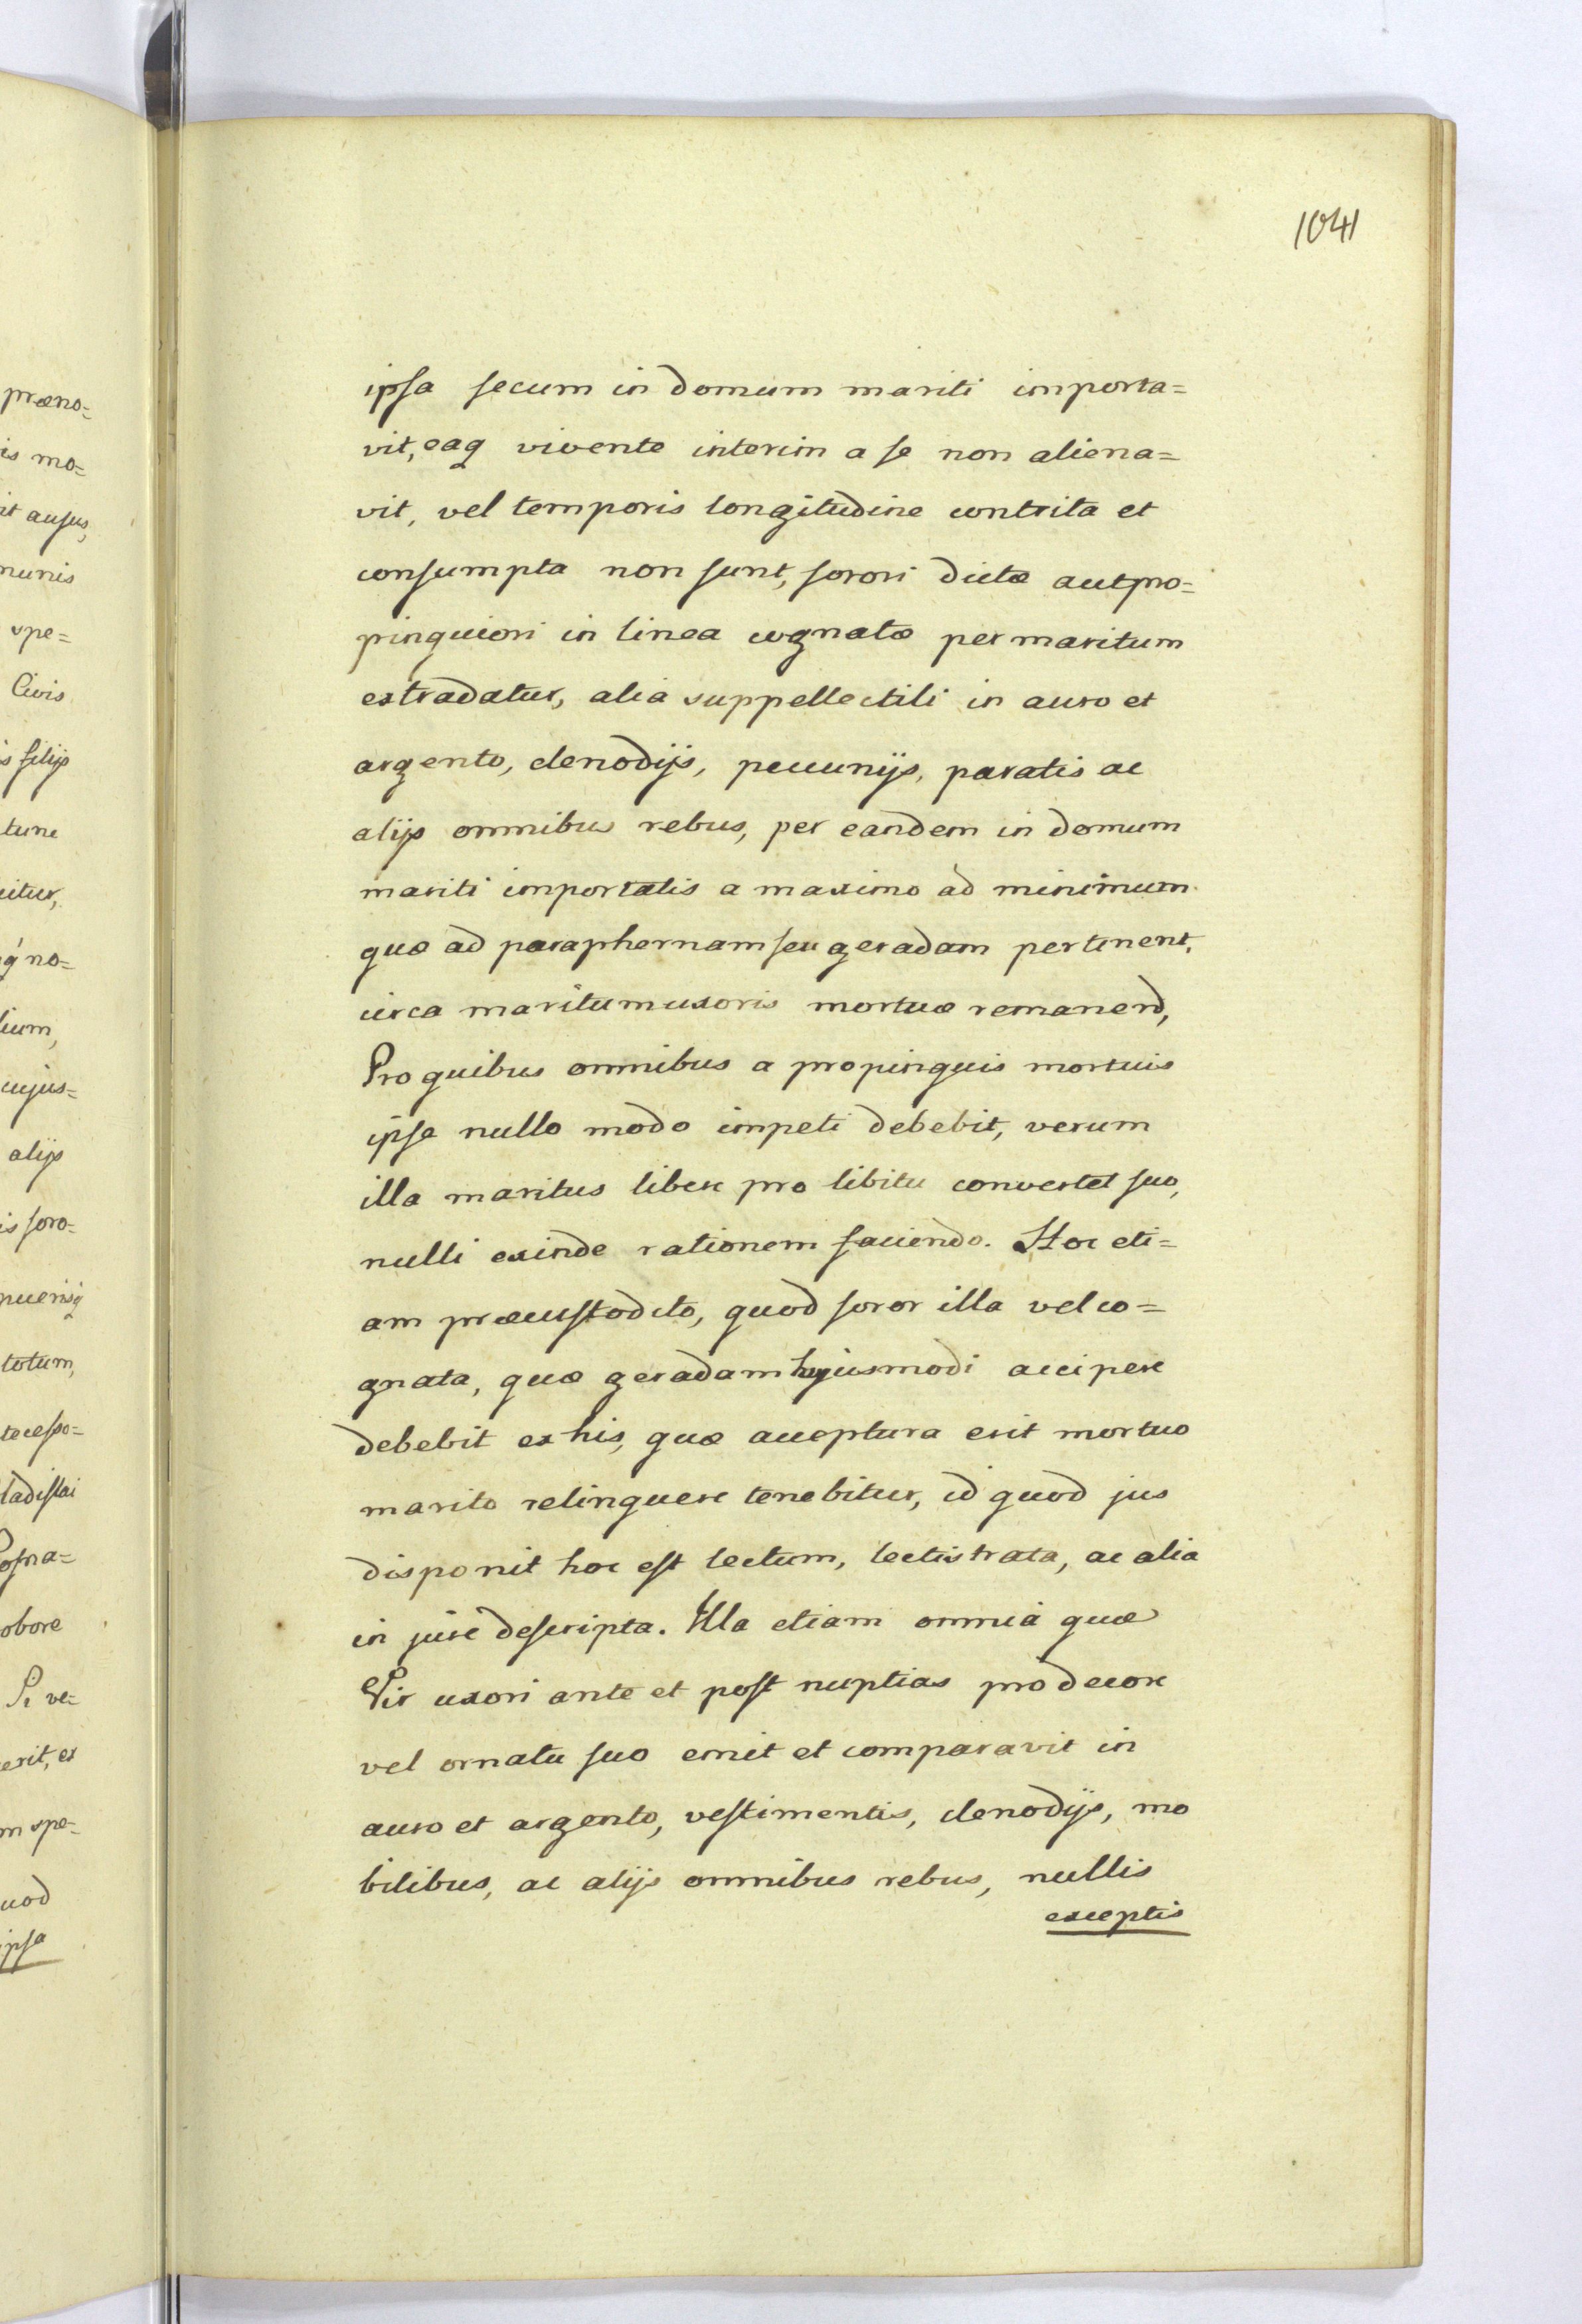 1041
ipsa secum in domum mariti importa=
vit, eaq vivente interim a se non aliena=
vit, vel temporis longitudine contrita et
consumpta non sunt, sorori dictæ aut pro=
pinquiori in linea cognatæ per maritum
extradatur, alia suppellectili in auro et
argento, clenodijs, pecunijs, paratis ac
alijs omnibus rebus, per eandem in domum
mariti importatis a maximo ad minimum
quæ ad paraphernam seu geradam pertinent,
circa maritum uxoris mortuæ remanend,
Pro quibus omnibus a propinquis mortuis
ipse nullo modo impeti debebit, verum
illa maritus libere pro libitu convertet suo,
nulli exinde rationem faciendo. Hoc eti=
am præcustodito, quod soror illa vel co=
gnata, quæ geradam hujusmodi accipere
debebit ex his, quæ acceptura erit mortuo
marito relinquere tenebitur, id quod jus
disponit hoc est lectum, lectistrata, ac alia
in jure descripta. Illa etiam omnia quæ
Vir uxori ante et post nuptias pro decore
vel ornatu suo emit et comparavit in
auro et argento, vestimentis, clenodijs, mo
bilibus, ac alijs omnibus rebus, nullis
exceptis
præno=
is mo=
it ausus,
munis
spe=
Civis
is filijs
tunc
itur,
no=
lium,
cujus=
alijs
is soro=
puerisq
totum,
ladislai
obore
Si ve=
erit, ex
m spe=
uod
ipsa